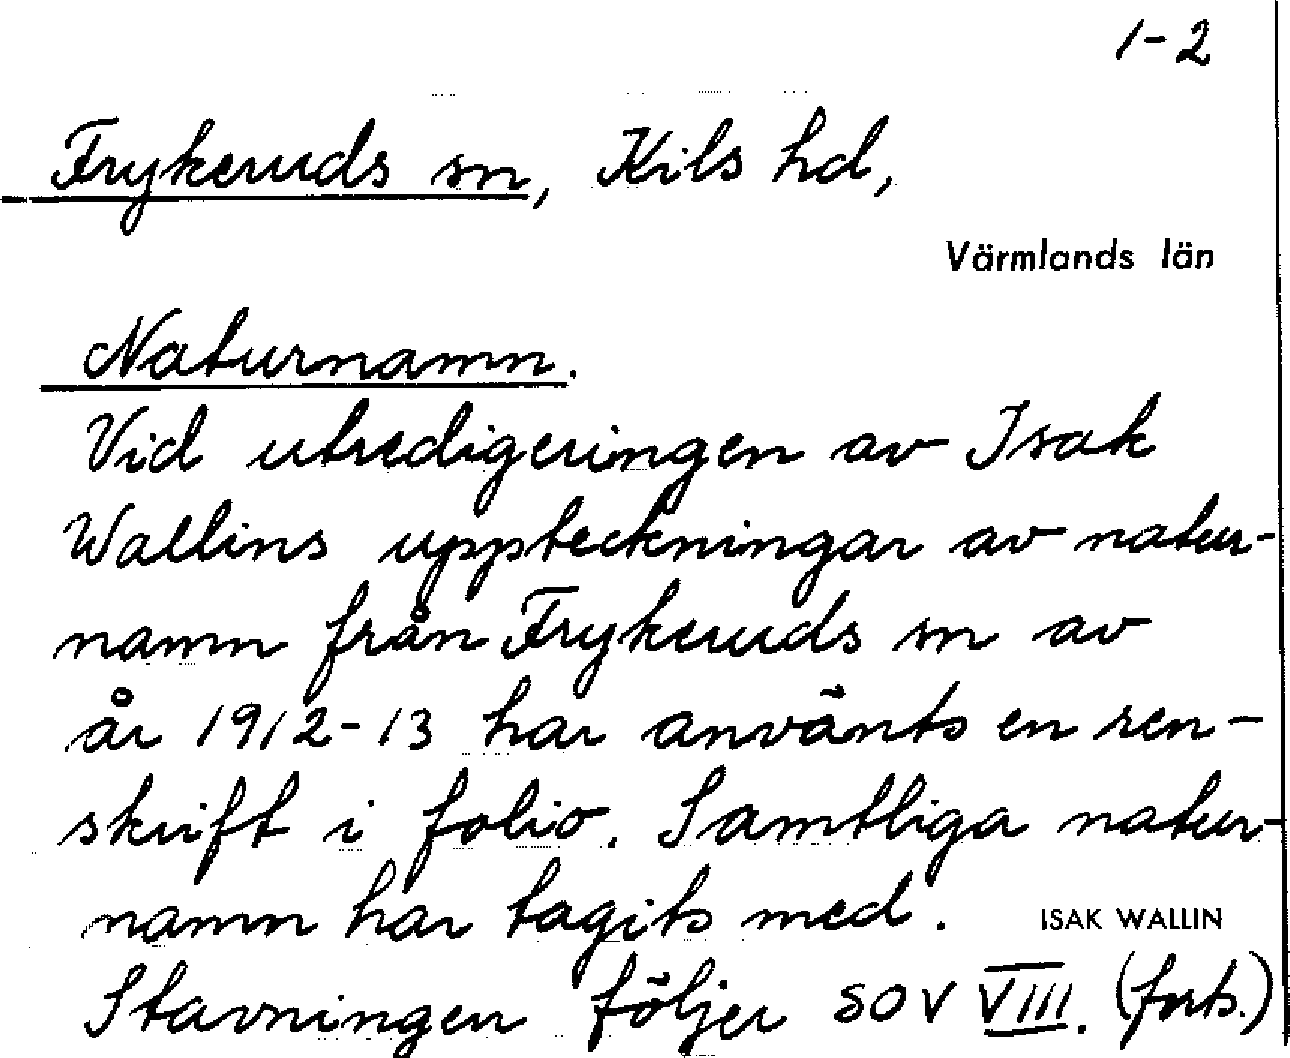 1-2
Frykeruds sn, Kils hd,
Värmlands län
Naturnamn.
Vid utredigeringen av Isak
Wallins uppteckningar av natur-
namn från Frykeruds sn av
år 1912-13 har använts en ren-
skrift i folio. Samtliga natur-
namn har tagits med.
ISAK WALLIN
Stavningen följer SOV VIII. (forts.)